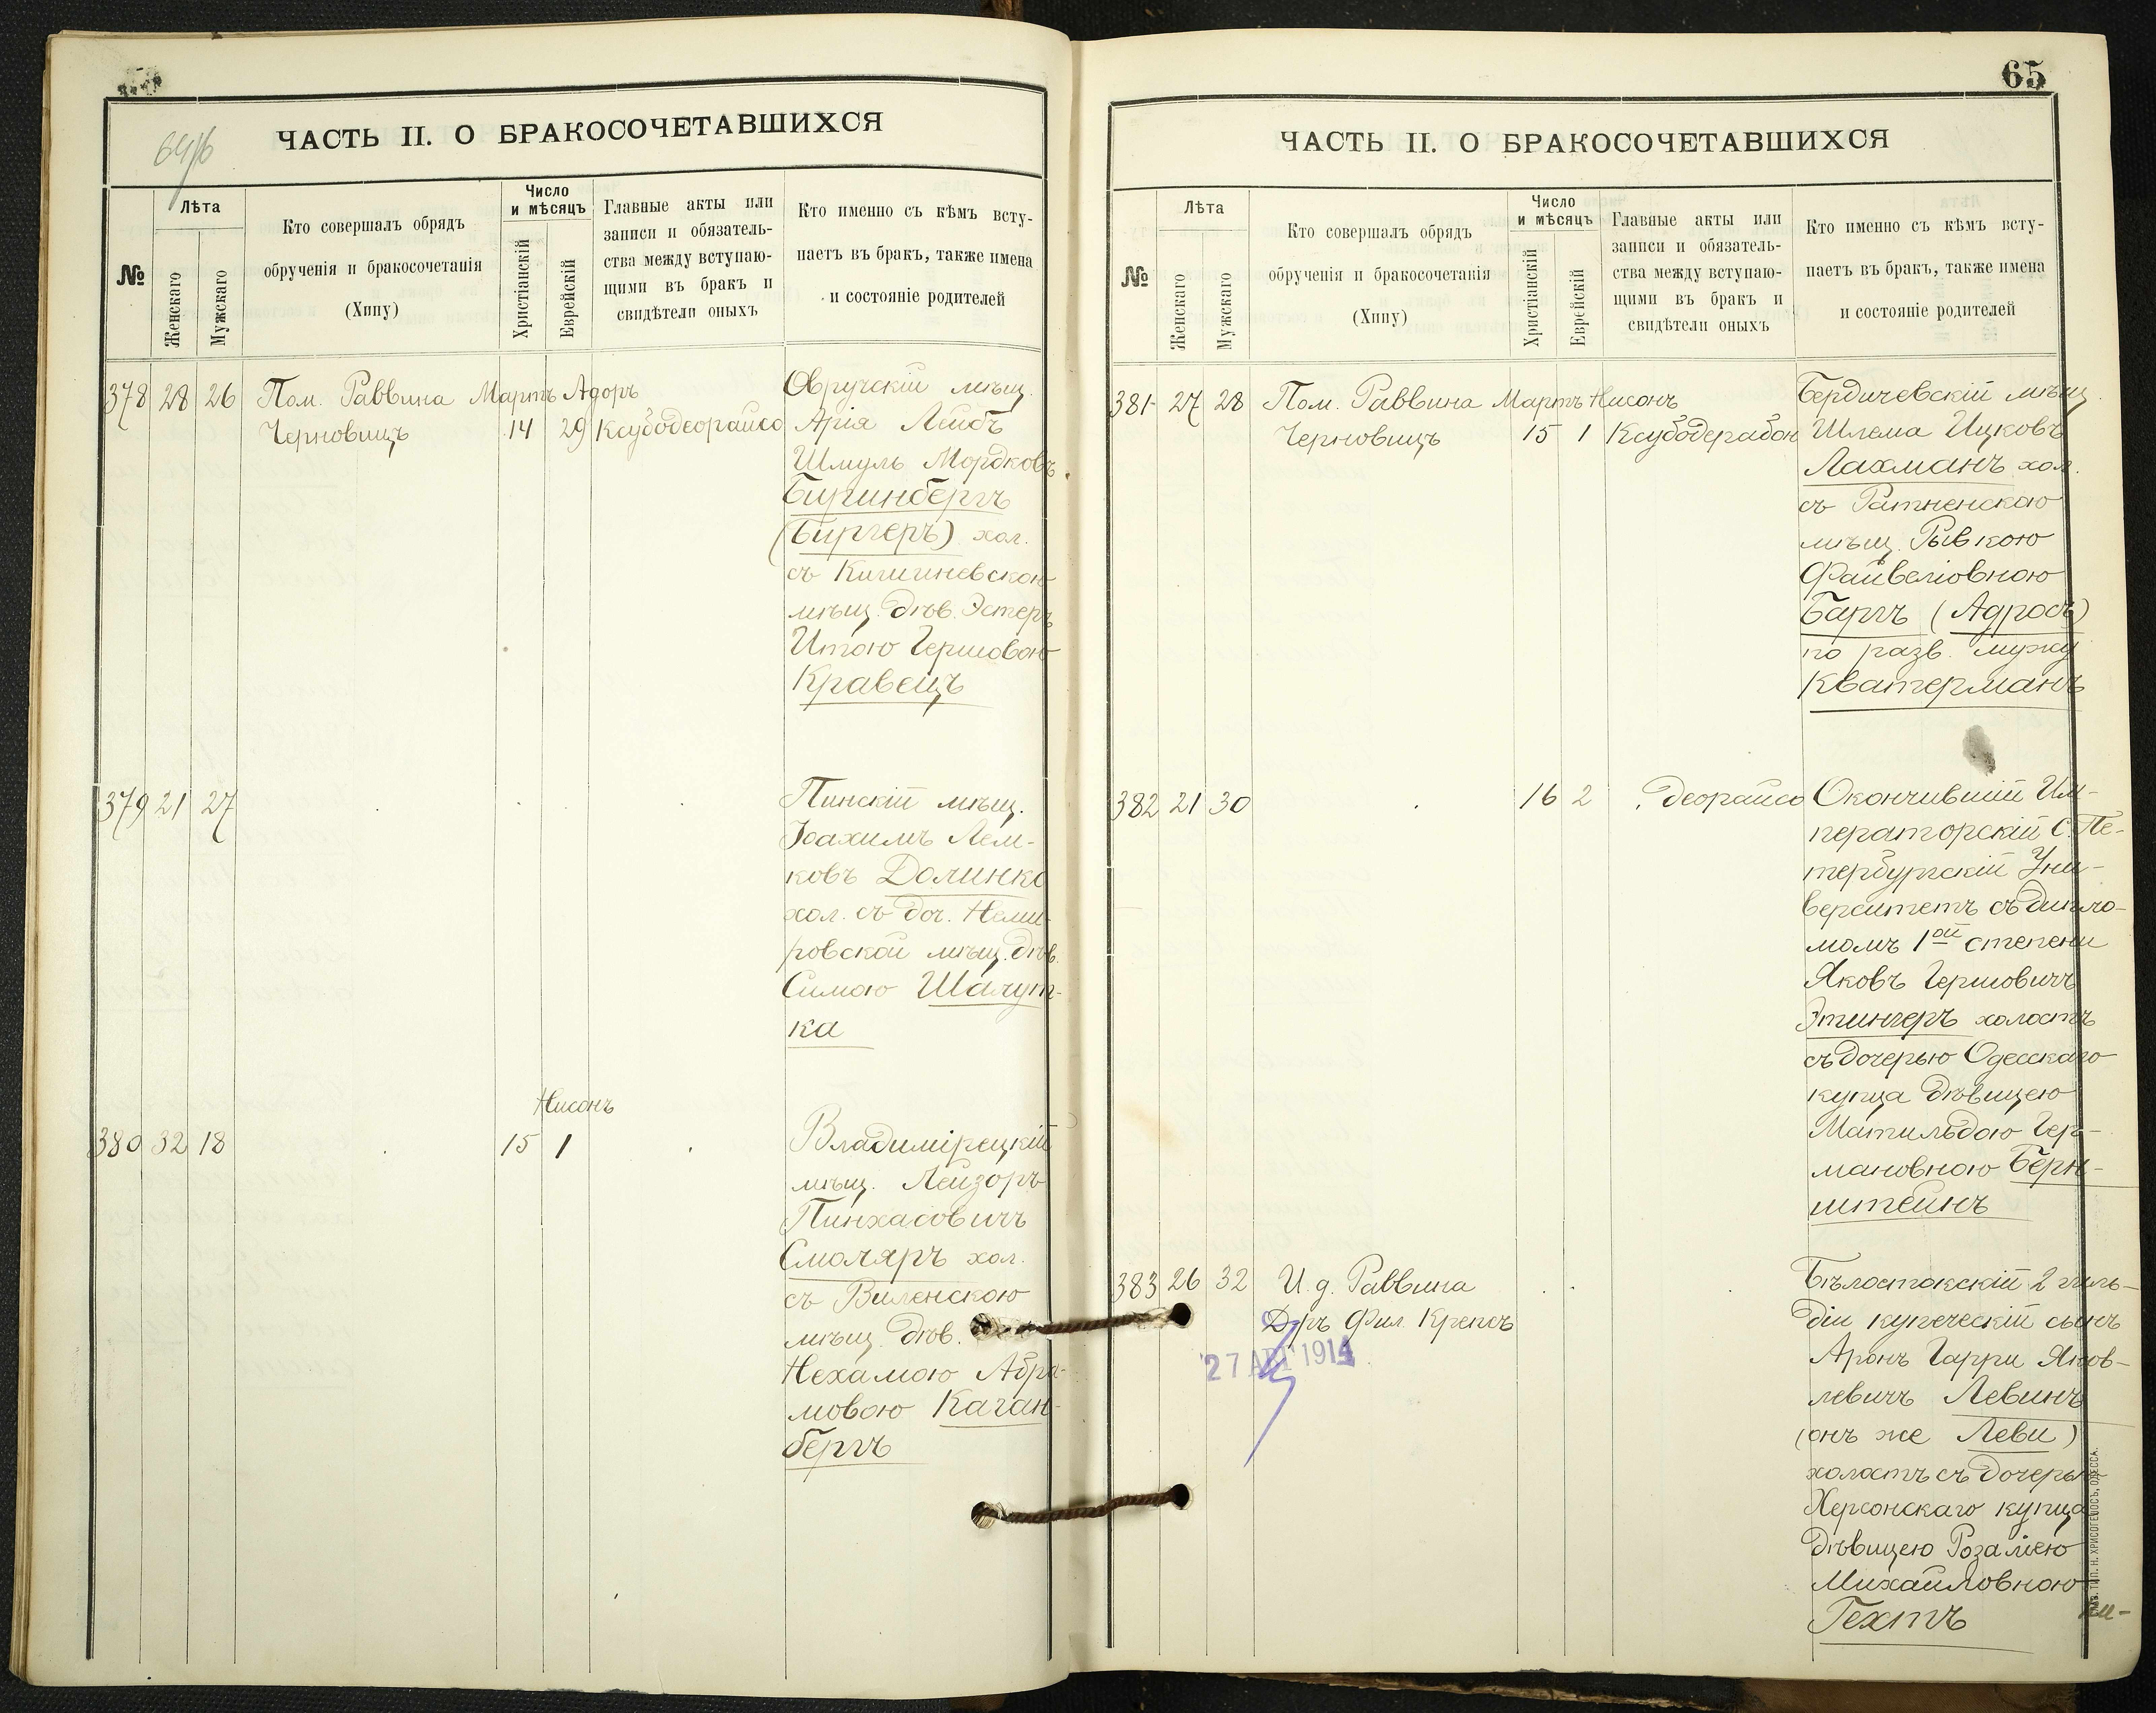 64/б
ЧАСТЬ II. О БРАКОСОЧЕТАВШИХСЯ
№
Лѣта
Женскаго
Мужскаго
Кто совершалъ обрядъ
обрученія и бракосочетанія
(Хипу)
Число
и мѣсяцъ
Христіанскій
Еврейскій
Главные акты или
записи и обязатель-
ства между вступаю-
щими въ бракъ и
свидѣтели оныхъ
Кто именно съ кѣмъ всту-
паетъ въ бракъ, также имена
и состояніе родителей
378 28 26 Пом. Раввина Мартъ Адоръ
Черновицъ 14 29 Ксубодеорайсо
Овручскій мѣщ.
Арія Лейбъ
Шмуль Мордковъ
Бугинбергъ
(Бургеръ) хол.
съ Кишиневскою
мѣщ. дѣв. Эстеръ
Итою Гершовою
Кравецъ
379 21 27
Пинскій мѣщ.
Іоахимъ Лем-
ковъ Долинко
хол. съ доч. Неми-
ровской мѣщ. дѣв.
Симою Шалут-
ка
Нисонъ
380 32 18 15 1
Владимірецкій
мѣщ. Лейзоръ
Пинхасовичъ
Смоляръ хол.
съ Виленскою
мѣщ. дѣв.
Нехамою Абра-
мовою Каган-
бергъ
65
ЧАСТЬ II. О БРАКОСОЧЕТАВШИХСЯ
№
Лѣта
Женскаго
Мужскаго
Кто совершалъ обрядъ
обрученія и бракосочетанія
(Хипу)
Число
и мѣсяцъ
Христіанскій
Еврейскій
Главные акты или
записи и обязатель-
ства между вступаю-
щими въ бракъ и
свидѣтели оныхъ
Кто именно съ кѣмъ всту-
паетъ въ бракъ, также имена
и состояніе родителей
381 27 28 Пом. Раввина Мартъ Нисонъ
Черновицъ 15 1 Ксубодерабон
Бердичевскій мѣщ.
Шлема Ицковъ
Лахманъ хол.
съ Ратненскою
мѣщ. Рывкою
Файвеліовною
Баргъ (Адросъ)
по разв. мужу
Кватерманъ
382 21 30 16 2 деорайсо
Окончившій Им-
ператорскій С. Пе-
тербургскій Уни-
верситетъ съ дипло-
момъ 1ой степени
Яковъ Гершовичъ
Этингеръ холостъ
съ дочерью Одесскаго
купца дѣвицею
Матильдою Гер-
мановною Берн-
штейнъ
383 26 32 И. д. Раввина
Д-ръ Фил. Крепсъ
27 АВГ 1914
Бѣлостокскій 2 гиль-
діи купеческій сынъ
Аронъ Гарри Яков-
левичъ Левинъ
(онъ же Леви)
холостъ съ дочерью
Херсонскаго купца
дѣвицею Розаліею
Михайловною
Гехтъ
ТИП. Н. ХРИСОГЕЛОСЪ, ОДЕССА.